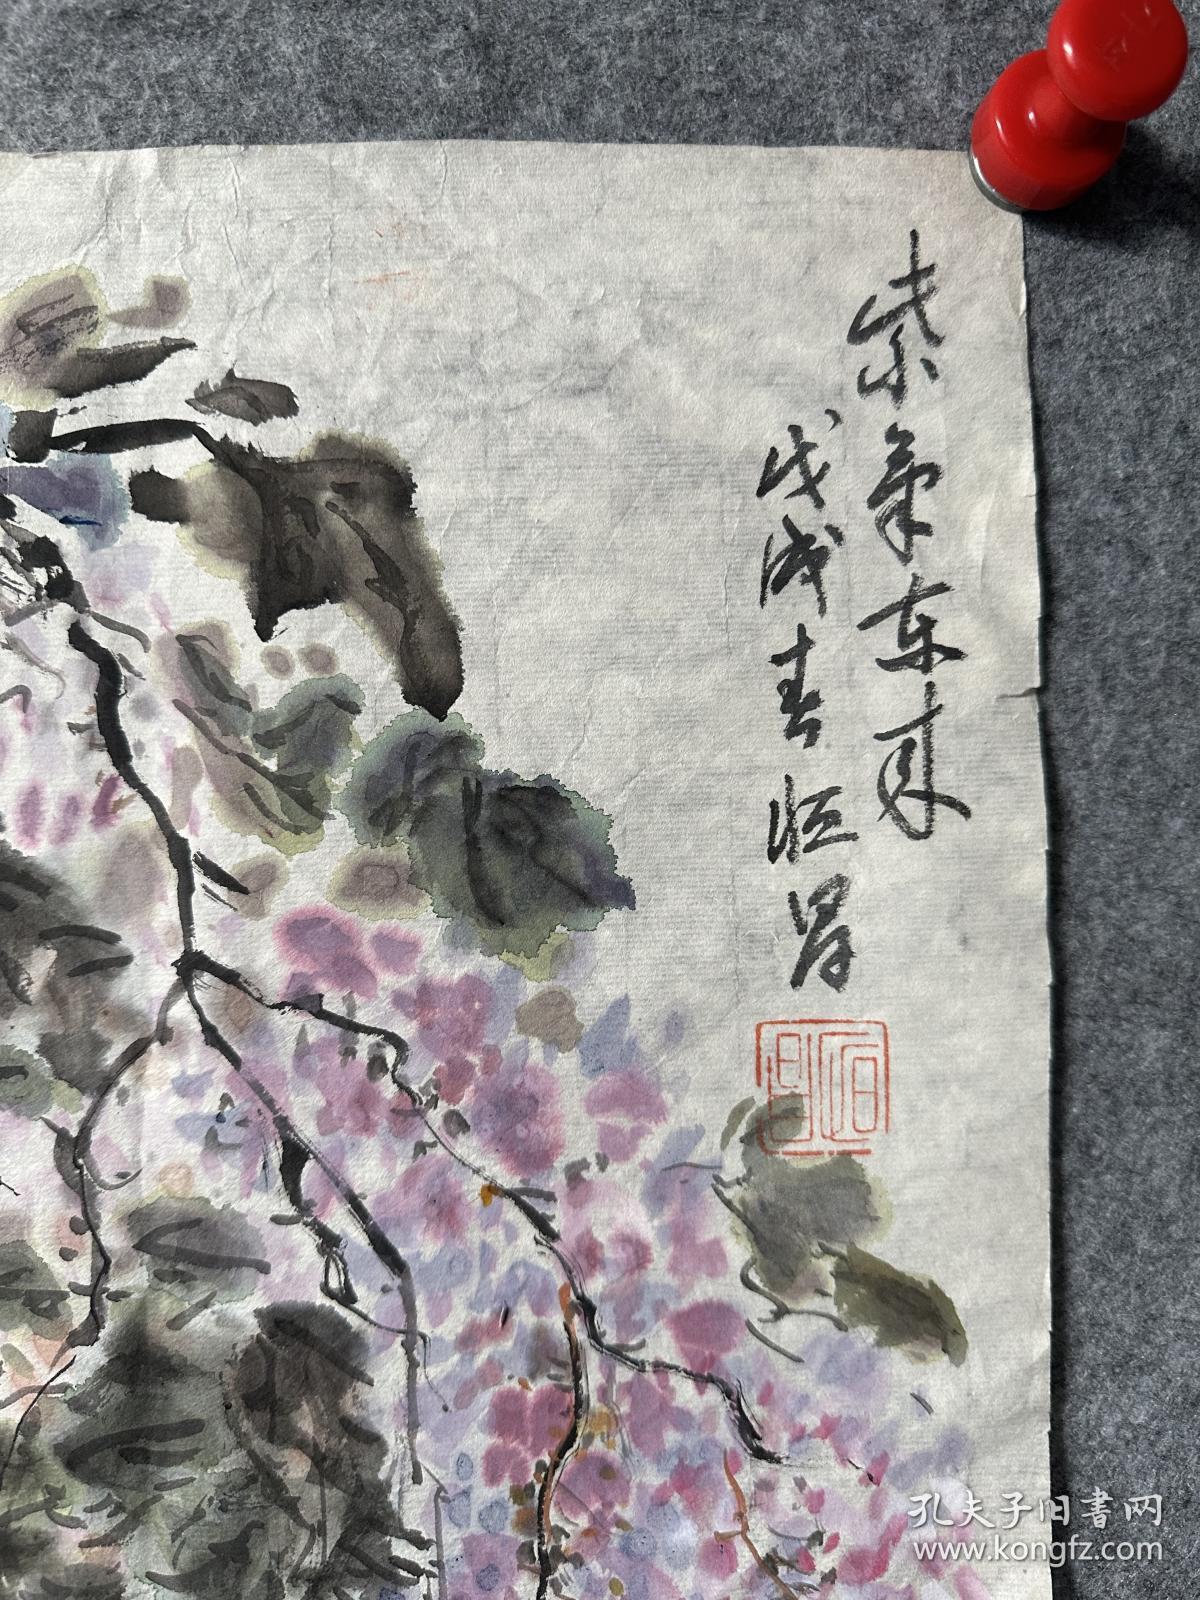 紫氣东来
戊戌春恒昌
孔夫子旧書网
www.kongfz.com